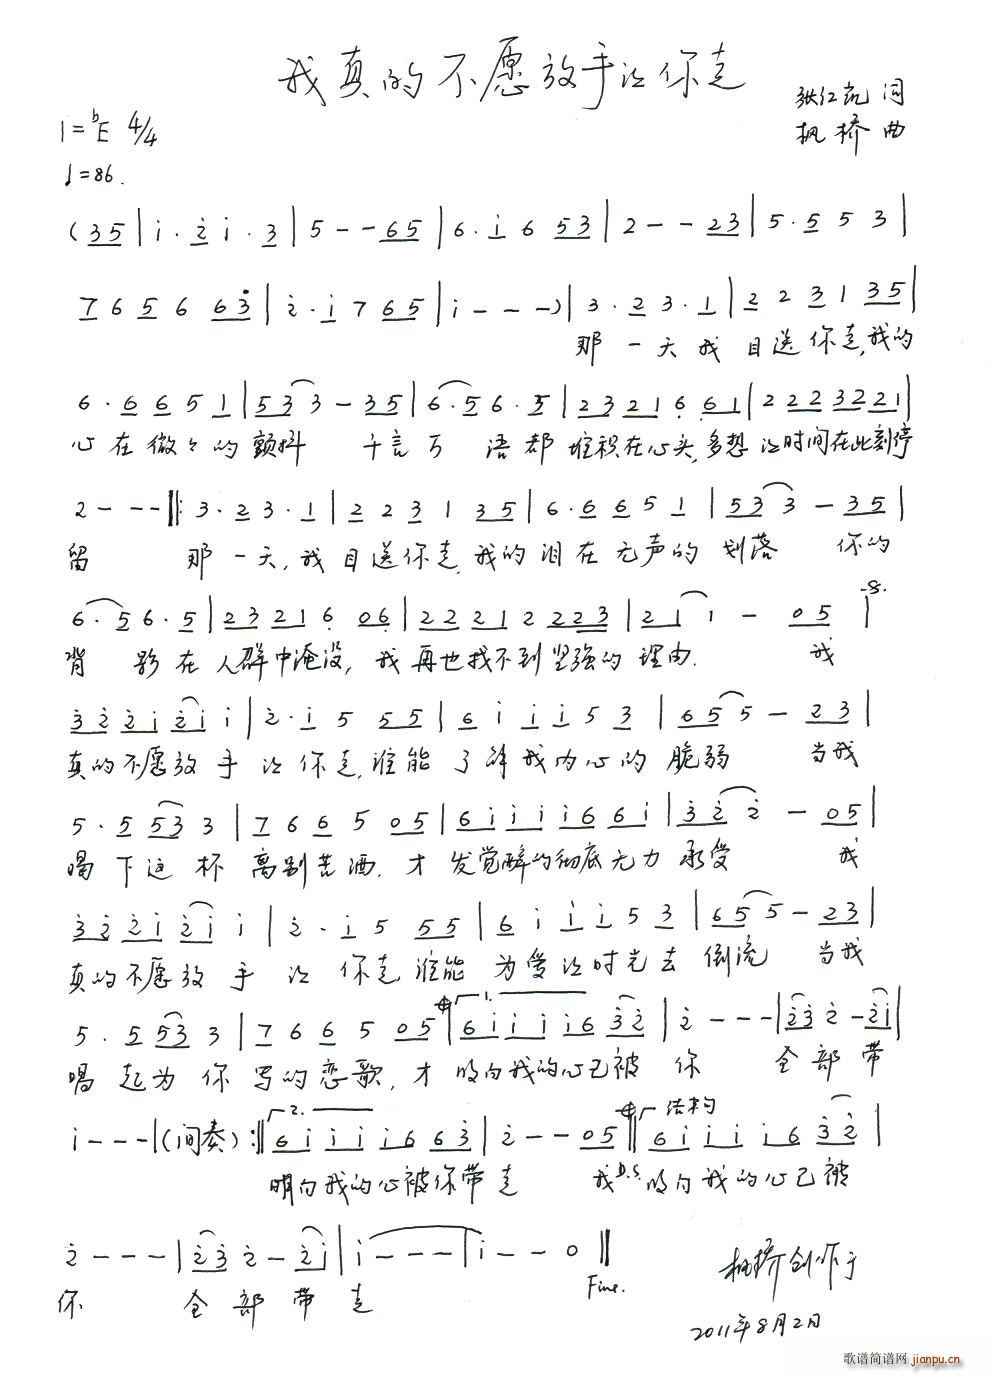 我真的不愿放手让你走
张红凯 词
1=bE 4/4
枫桥 曲
♩=86.
(35|i·2̇ i·3|5--65|6·i 6 53|2--23|5·5 5 3|
7 6 5 6 63̇|2̇·i 7 65|i---)|3·2 3·1|2 2 3 1 35|
那一天我目送你走,我的
6·6 6 5 1|53 3-35|6·5 6·5|23 21 6 61|2 2 2 3 2 2 1|
心在微々的颤抖 千言万语都堆积在心头,多想让时间在此刻停
2---‖:3·2 3·1|2 2 3 1 35|6·6 6 5 1|53 3-35|
留 那一天,我目送你走,我的泪在无声的划落 你的
6·5 6·5|23 21 6 06|2 2 2 1 2 2 2 3|21 1-05|𝄋
背影在人群中淹没,我再也找不到坚强的理由. 我
3̇ 2̇ 2̇ i 2̇ i i|2̇·i 5 55|6 i i i 5 3|65 5-23|
真的不愿放手让你走,谁能了解我内心的脆弱 当我
5·5 53 3|7 6 6 5 05|6 i i i i 6 6 i|3̇ 2̇ 2̇-05|
喝下这杯离别苦酒,才发觉醉的彻底无力承受 我
3̇ 2̇ 2̇ i 2̇ i i|2̇·i 5 55|6 i i i 5 3|65 5-23|
真的不愿放手让你走谁能为爱让时光去倒流 当我
5·5 53 3|7 6 6 5 05|𝄌 1. 6 i i i i 6 3̇ 2̇|2̇---|2̇ 3̇ 2̇-2̇ i|
唱起为你写的恋歌,才明白我的心已被你 全部带
i---|(间奏):‖2. 6 i i i i 6 6 3̇|2̇--05‖𝄌 结构 6 i i i i 6 3̇ 2̇|
明白我的心被你带走 我 D.S. 明白我的心已被
2̇---|2̇ 3̇ 2̇-2̇ i|i---|i--0‖
你 全部带走 Fine.
枫桥创作于
2011年8月2日
歌谱简谱网 jianpu.cn